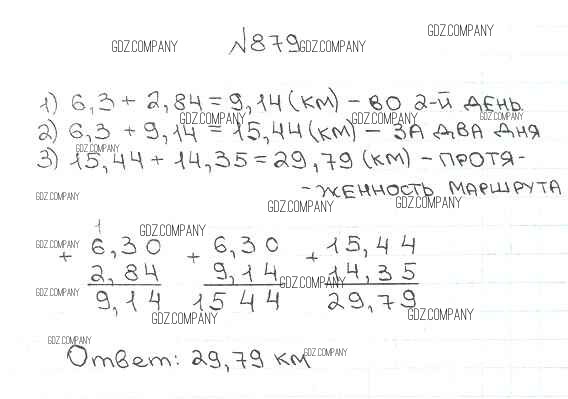 GDZ.COMPANY
№879 GDZ.COMPANY
GDZ.COMPANY
1) 6,3 + 2,84 = 9,14 (км) - во 2-й день
GDZ.COMPANY GDZ.COMPANY GDZ.COMPANY
2) 6,3 + 9,14 = 15,44 (км) - за два дня
GDZ.COMPANY
3) 15,44 + 14,35 = 29,79 (км) - протя-
- женность маршрута
GDZ.COMPANY GDZ.COMPANY GDZ.COMPANY
1
GDZ.COMPANY
GDZ.COMPANY
+ 6,30 + 6,30 + 15,44
2,84 9,14 14,35
GDZ.COMPANY
GDZ.COMPANY
9,14 15 44 29,79
GDZ.COMPANY GDZ.COMPANY
GDZ.COMPANY
Ответ: 29,79 км
GDZ.COMPANY